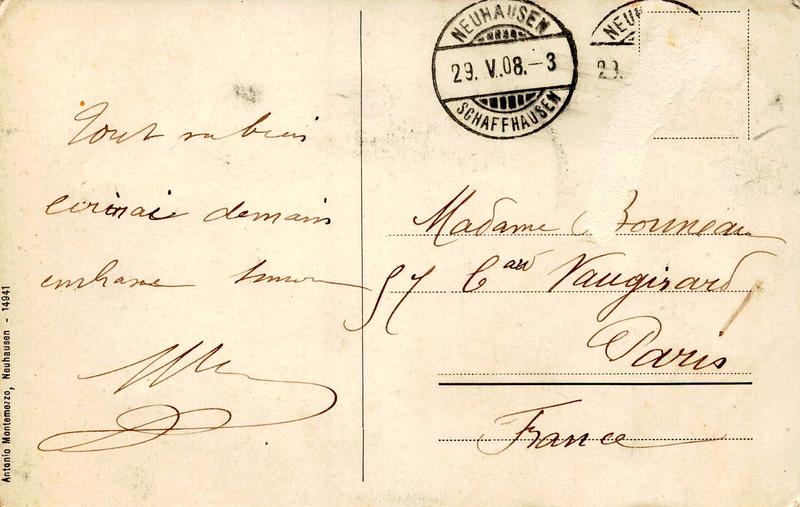 NEUHAUSEN
29. V.08.-3
SCHAFFHAUSEN
NEUH
29.
Tout va bien
écrirai demain
Madame Bonneau
57 Bard Vaugirard
Paris
France
Antonio Montemozzo, Neuhausen - 14941